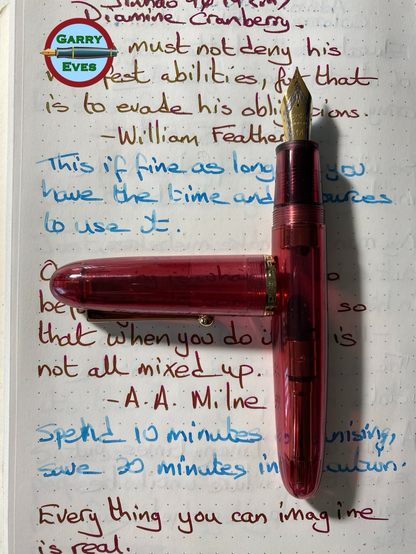 Jinhao
Diamine Cranberry.
GARRY
EVES
must not deny his
abilities, for that
is to evade his
-William Feather
This if fine as long you
have the time and
to use it.
O
be so
that when you do is
not all mixed up.
-A. A. Milne
Spend 10 minutes
save 20 minutes in
Everything you can imagine
is real.